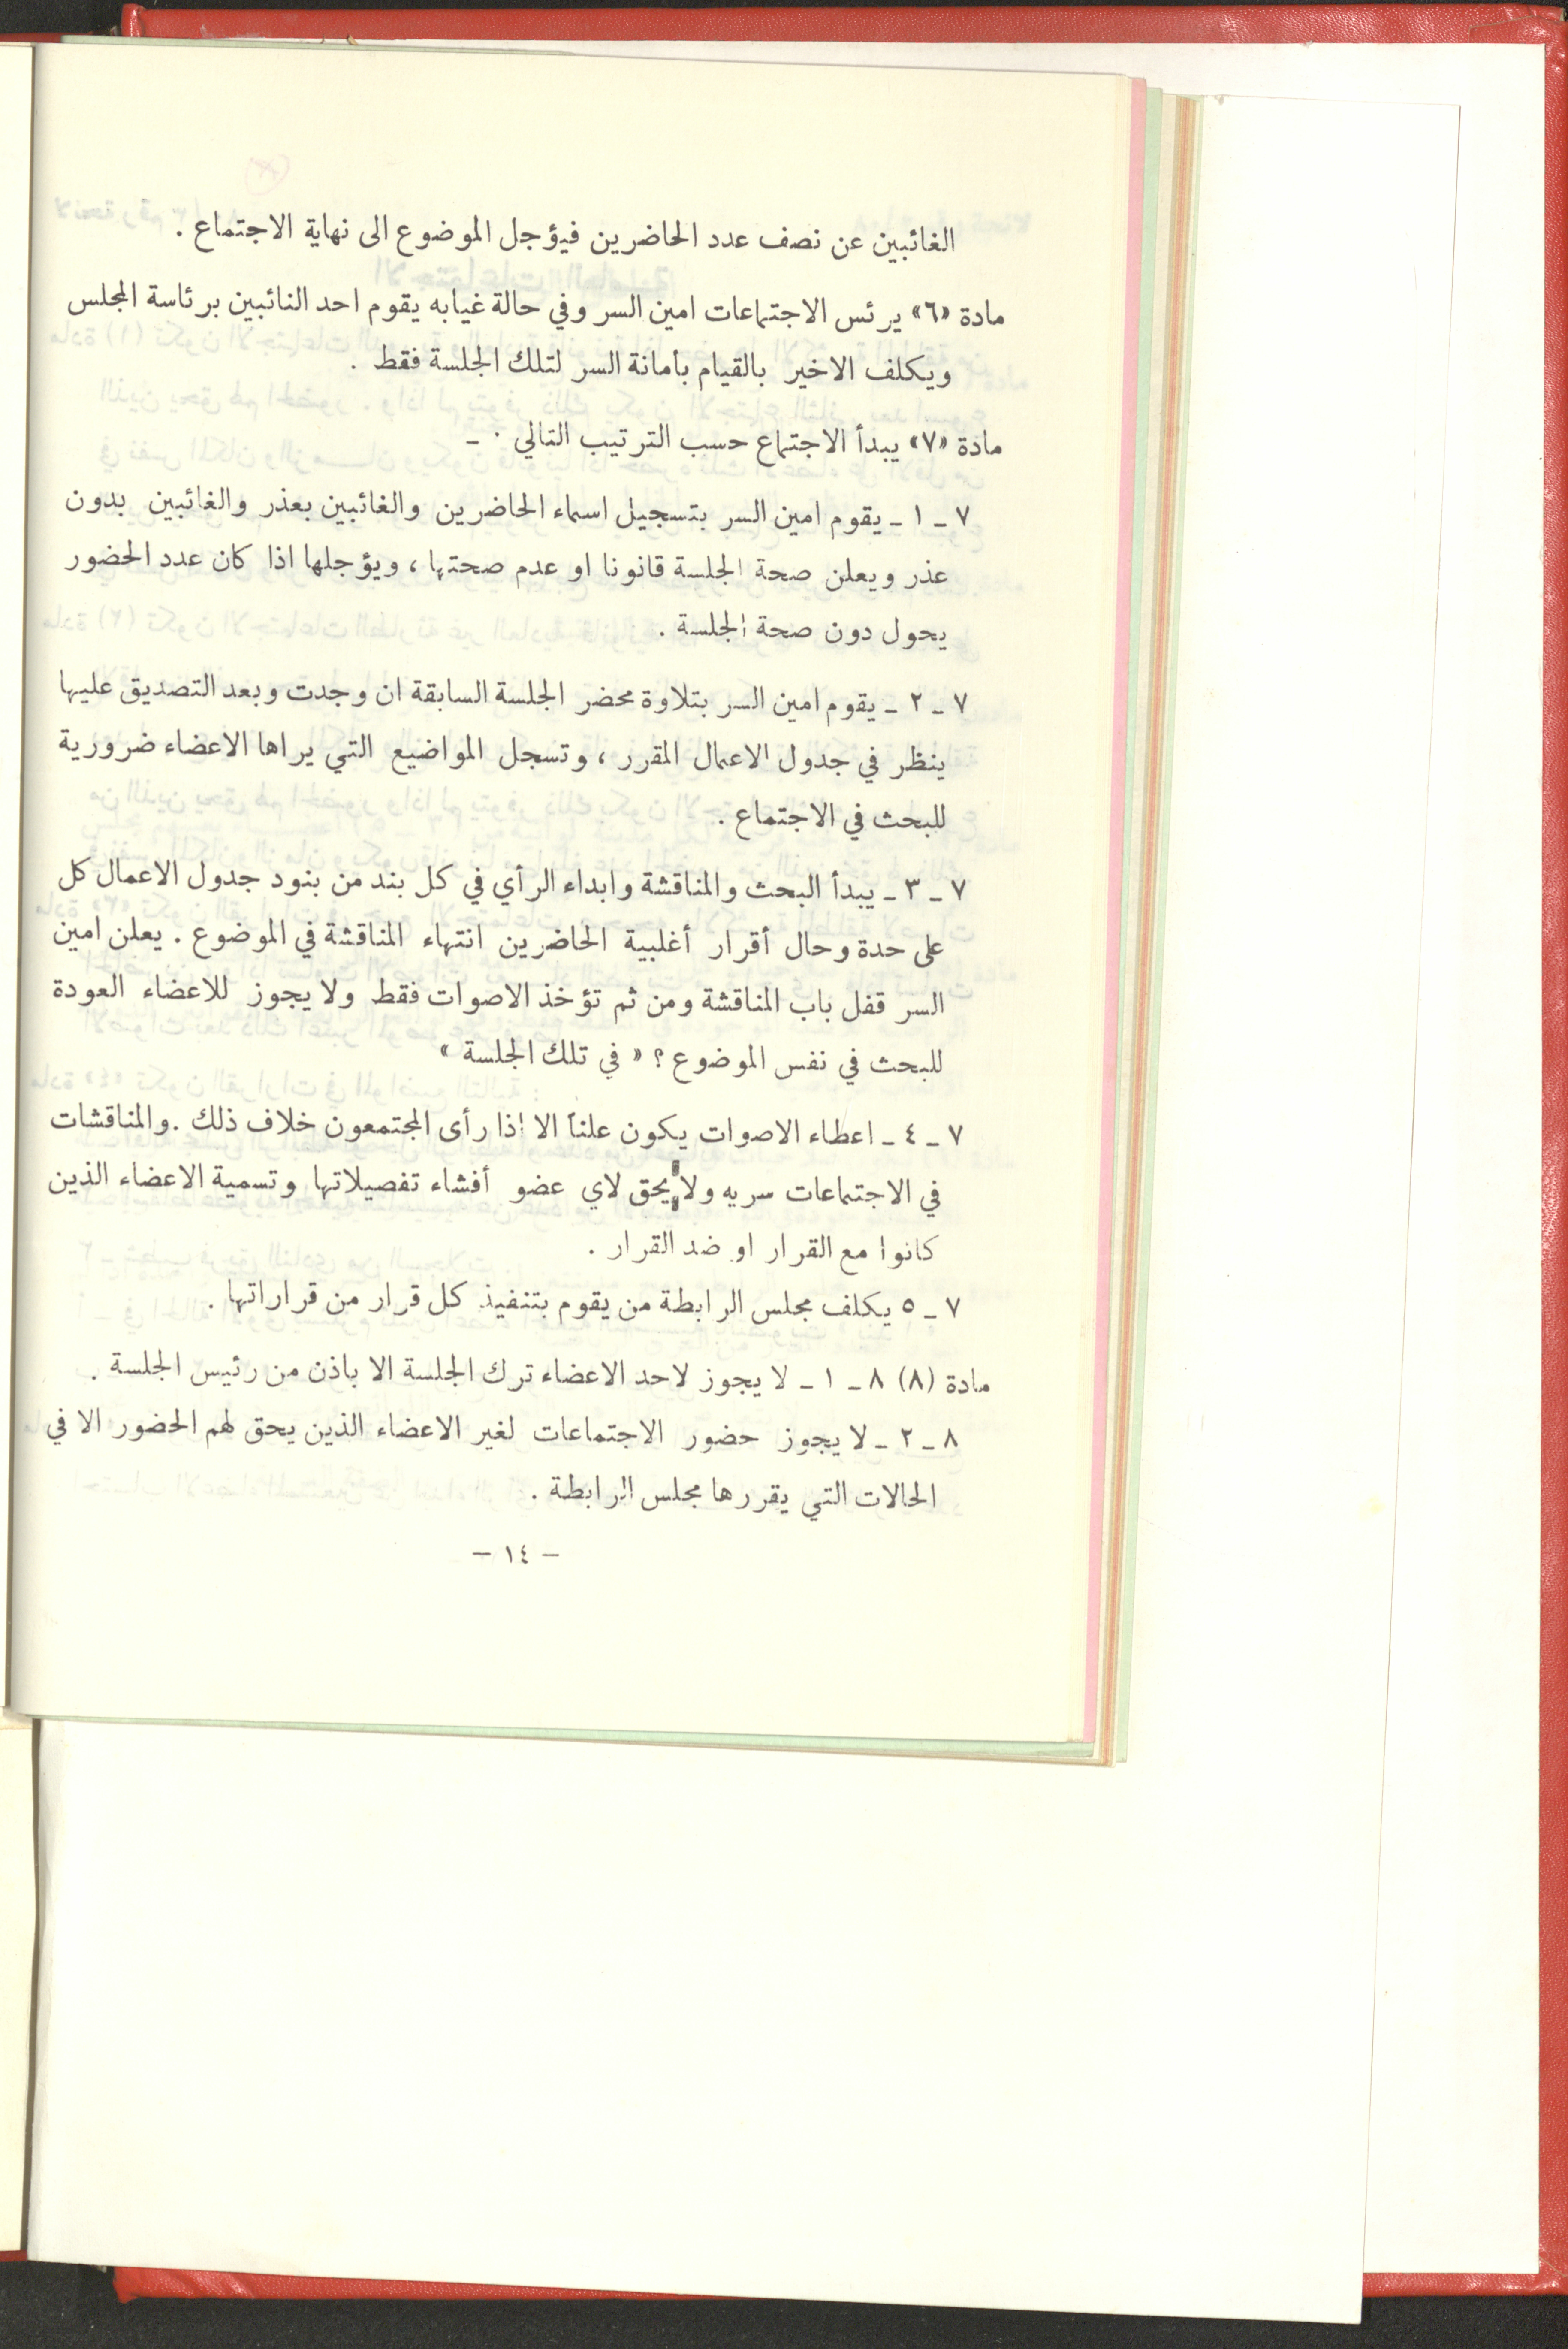 الغائبين عن نصف عدد الحاضرين فيؤجل الموضوع الى نهاية الاجتماع .
مادة «٦» يرئس الاجتماعات امين السر وفي حالة غيابه يقوم احد النائبين برئاسة المجلس
ويكلف الاخير بالقيام بأمانة السر لتلك الجلسة فقط .
مادة «٧» يبدأ الاجتماع حسب الترتيب التالي . _
٧ _ ١ _ يقوم امين السر بتسجيل اسماء الحاضرين والغائبين بعذر والغائبين بدون
عذر ويعلن صحة الجلسة قانونا او عدم صحتها ، ويؤجلها اذا كان عدد الحضور
يحول دون صحة الجلسة .
٧ _ ٢ _ يقوم امين السر بتلاوة محضر الجلسة السابقة ان وجدت وبعد التصديق عليها
ينظر في جدول الاعمال المقرر ، وتسجل المواضيع التي يراها الاعضاء ضرورية
للبحث في الاجتماع .
٧ _ ٣ _ يبدأ البحث والمناقشة وابداء الرأي في كل بند من بنود جدول الاعمال كل
على حدة وحال أقرار أغلبية الحاضرين انتهاء المناقشة في الموضوع . يعلن امين
السر قفل باب المناقشة ومن ثم تؤخذ الاصوات فقط ولا يجوز للاعضاء العودة
للبحث في نفس الموضوع ؟ « في تلك الجلسة »
٧ _ ٤ _ اعطاء الاصوات يكون علناً الا اذا رأى المجتمعون خلاف ذلك . والمناقشات
في الاجتماعات سريه ولا يحق لاي عضو أفشاء تفصيلاتها وتسمية الاعضاء الذين
كانوا مع القرار او ضد القرار .
٧ _ ٥ يكلف مجلس الرابطة من يقوم بتنفيذ كل قرار من قراراتها .
مادة (٨) ٨ _ ١ _ لا يجوز لاحد الاعضاء ترك الجلسة الا باذن من رئيس الجلسة .
٨ _ ٢ _ لا يجوز حضور الاجتماعات لغير الاعضاء الذين يحق لهم الحضور الا في
الحالات التي يقررها مجلس الرابطة .
– ١٤ –